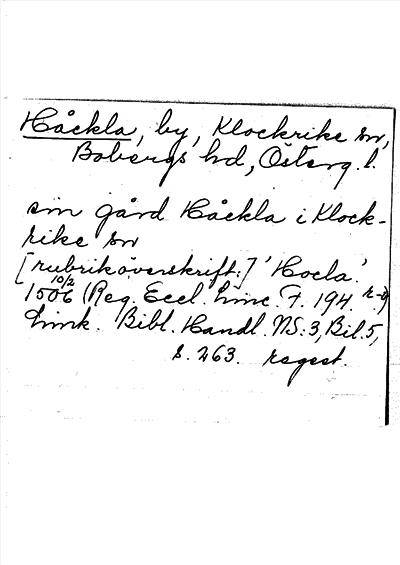 Håckla, by, Klockrike sn,
Bobergs hd, Österg. l.
sin gård Håckla i Klock-
rike sn
[rubriköverskrift:] 'Hocla'.
10/2
1506 (Reg. Eccl. Linc. F. 194. r-v)
Link. Bibl. Handl. NS: 3, Bil. 5,
s. 263. regest.